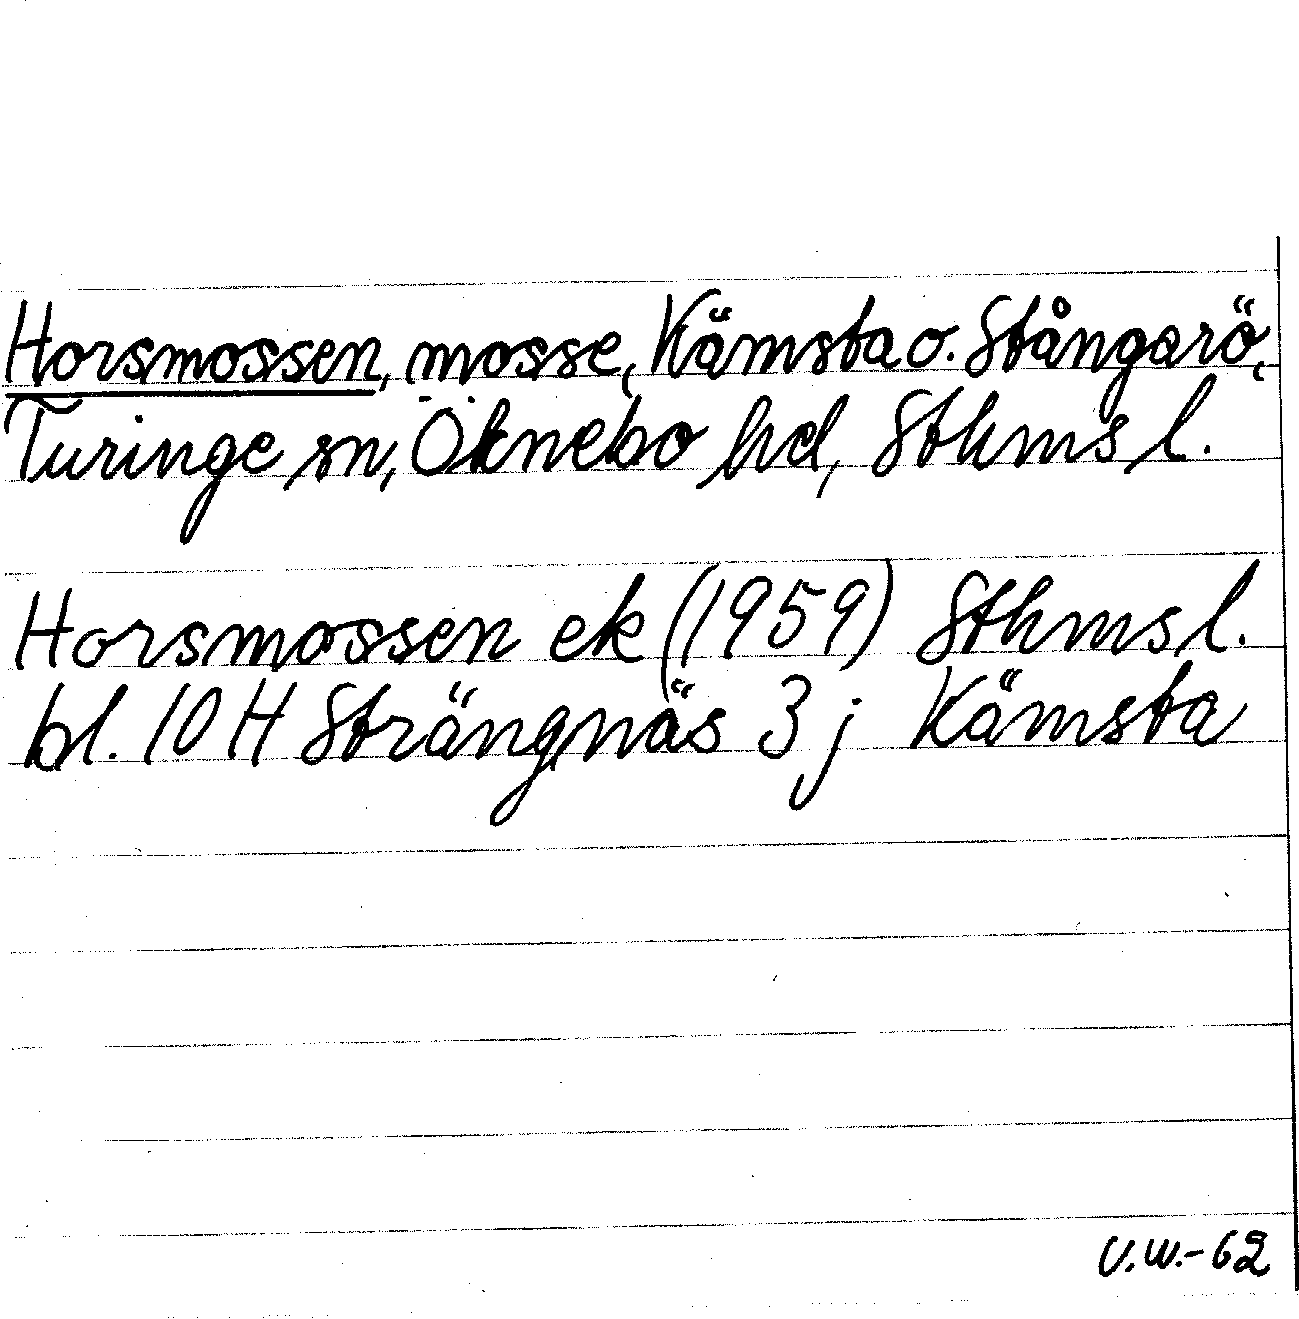 Horsmossen, mosse, Kämsta o. Stångarö,
Turinge sn, Öknebo hd, Sthms l.
Horsmossen ek (1959) Sthms l.
bl. 10 H Strängnäs 3 j Kämsta
U.W.-62